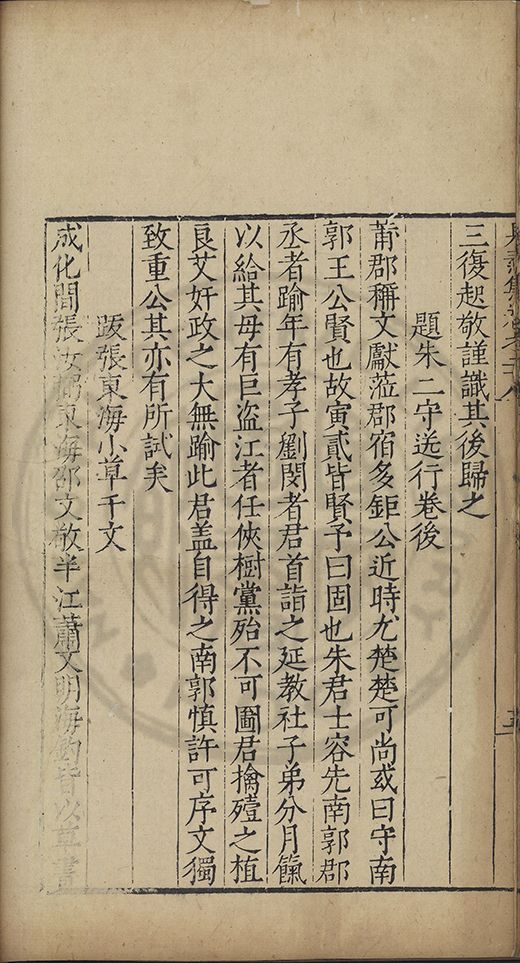 三復起敬謹識其後歸之
題朱二守送行卷後
莆郡稱文獻蒞郡宿多鉅公近時尤楚楚可尚或曰守南
郭王公賢也故寅貳皆賢予曰固也朱君士容先南郭郡
丞者踰年有孝子劉閔者君首詣之延教社子弟分月餼
以給其母有巨盜江者任俠樹黨殆不可圖君擒殪之植
良艾奸政之大無踰此君盖自得之南郭慎許可序文獨
致重公其亦有所試矣
跋張東海小草千文
成化間張汝弼東海邵文敬半江蕭文明海釣皆以草書